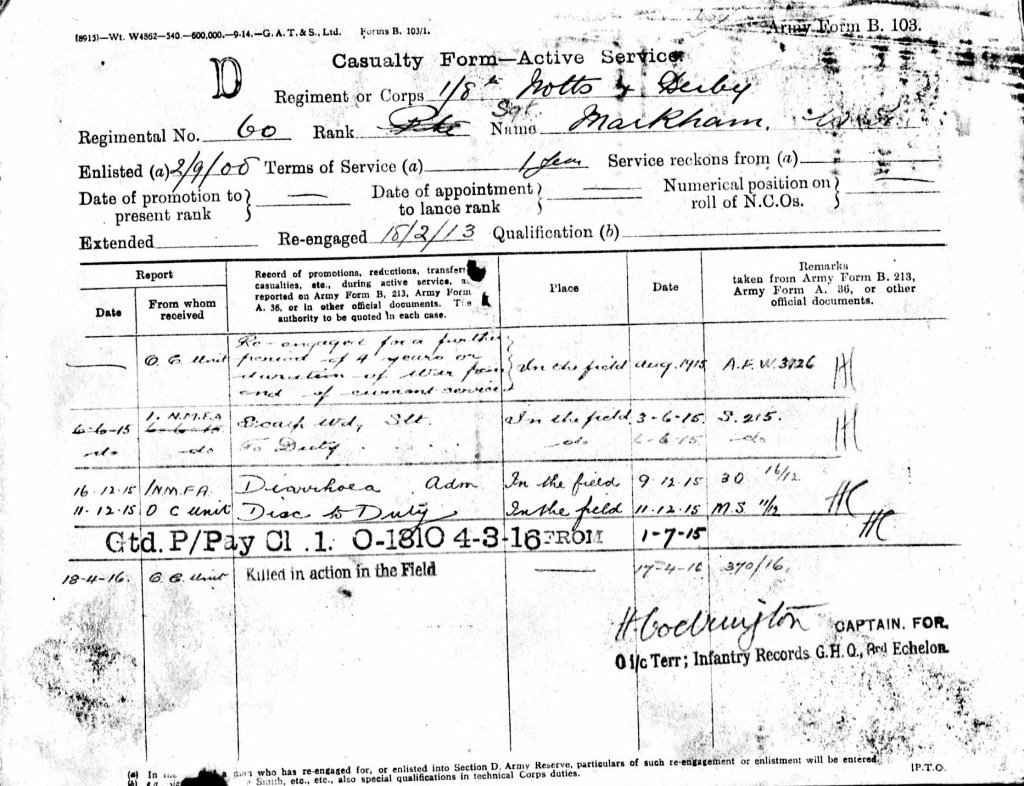 (8915)—Wt. W4862—540.—600,000.—9-14.—G. A. T. & S., Ltd. Forms B. 103/1.
Army Form B. 103.
Casualty Form—Active Service.
D
Regiment or Corps 1/8th Notts & Derby
Regimental No. 60 Rank Pte Sgt. Name Markham,
Enlisted (a) 2/9/08 Terms of Service (a) 1 Year Service reckons from (a)
Date of promotion to present rank } — Date of appointment to lance rank } — Numerical position on roll of N.C.Os. } —
Extended Re-engaged 18/2/13 Qualification (b)
Report
Date
From whom received
Record of promotions, reductions, transfers, casualties, etc., during active service, as reported on Army Form B. 213, Army Form A. 36, or in other official documents. The authority to be quoted in each case.
Place
Date
Remarks
taken from Army Form B. 213, Army Form A. 36, or other official documents.
— O. C. Unit Re-engaged for a further period of 4 years or duration of War from end of current service } In the field Aug. 1915 A.F.W. 3126 H
6-6-15 1. N.M.F.A Scalp Wd, Slt. In the field 3-6-15 S. 215. H
do do To Duty . . . . do 6-6-15 do
16.12.15 1/N.M.F.A. Diarrhoea Adm In the field 9.12.15 30 16/12
11.12.15 O C Unit Disc to Duty In the field 11.12.15 M.S 11/12 HC
Gtd. P/Pay Cl .1. O-1810 4-3-16 FROM 1-7-15 HC
18-4-16. O. C. Unit Killed in action in the Field — 17-4-16 370/16.
H Codrington CAPTAIN. FOR.
O i/c Terr; Infantry Records G.H.Q., 3rd Echelon.
(a) In the man who has re-engaged for, or enlisted into Section D. Army Reserve, particulars of such re-engagement or enlistment will be entered.
(b) Smith, etc., etc., also special qualifications in technical Corps duties.
[P.T.O.